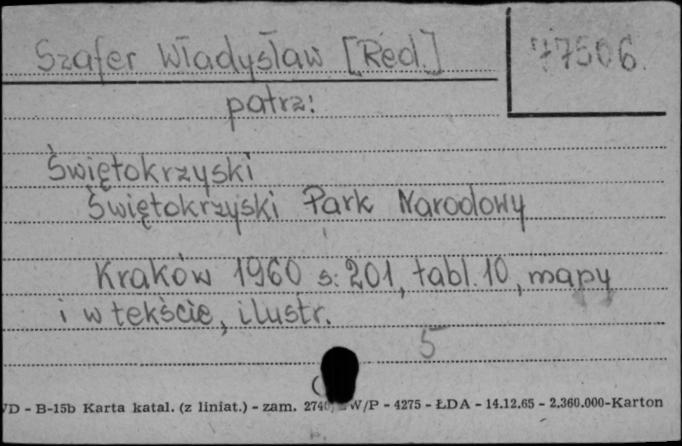 Szafer Władysław [Red.]
77506.
patrz:
Świętokrzyski
Świętokrzyski Park Narodowy
Kraków 1960 s. 201, tabl. 10, mapy
i w tekście, ilustr.
5
D - B-15b Karta katal. (z liniat.) - zam. 2740 W/P - 4275 - ŁDA - 14.12.65 - 2.360.000-Karton